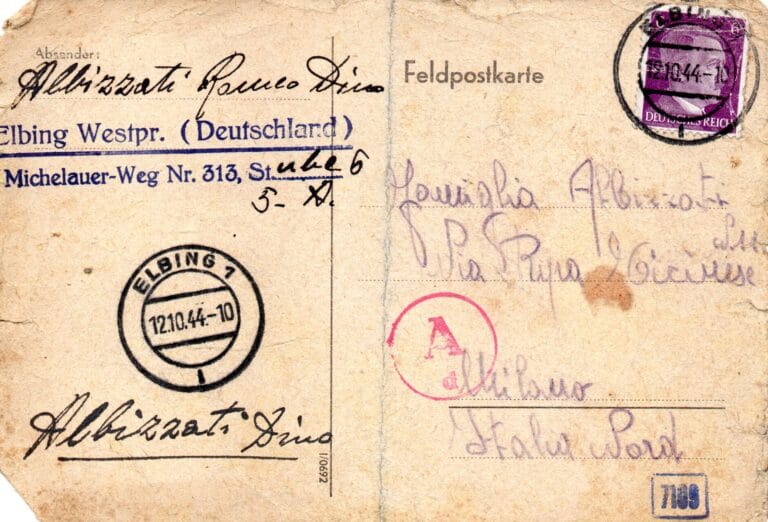 Absender:
Albizzati Romeo Dino
Elbing Westpr. (Deutschland)
Michelauer-Weg Nr. 313, Stube 6
5-A.
ELBING 1
12.10.44.-10
1
Albizzati Dino
I/0692
Feldpostkarte
ELBING
12.10.44.-10
1
6
DEUTSCHES REICH
Famiglia Albizzati
Via Ripa Ticinese
A
d
Milano
Italia Nord
7109